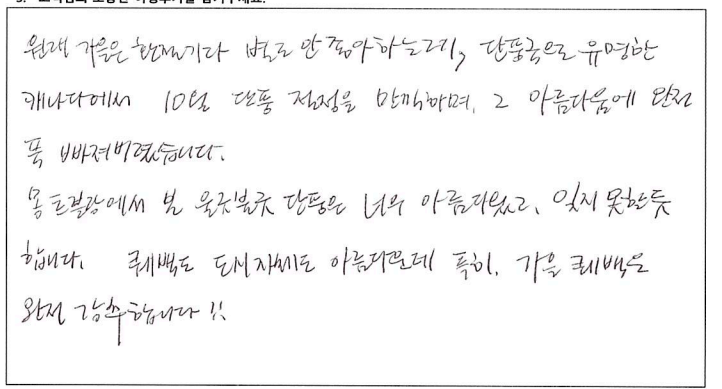 원래 가을은 환절기라 별로 안 좋아하는데, 단풍국으로 유명한
캐나다에서 10월 단풍 절정을 만끽하며, 그 아름다움에 완전
푹 빠져버렸습니다.
몽트블랑에서 본 울긋불긋 단풍은 너무 아름다웠고, 잊지 못할듯
합니다. 퀘백도 도시자체도 아름다운데 특히, 가을 퀘백은
완전 강추합니다!!